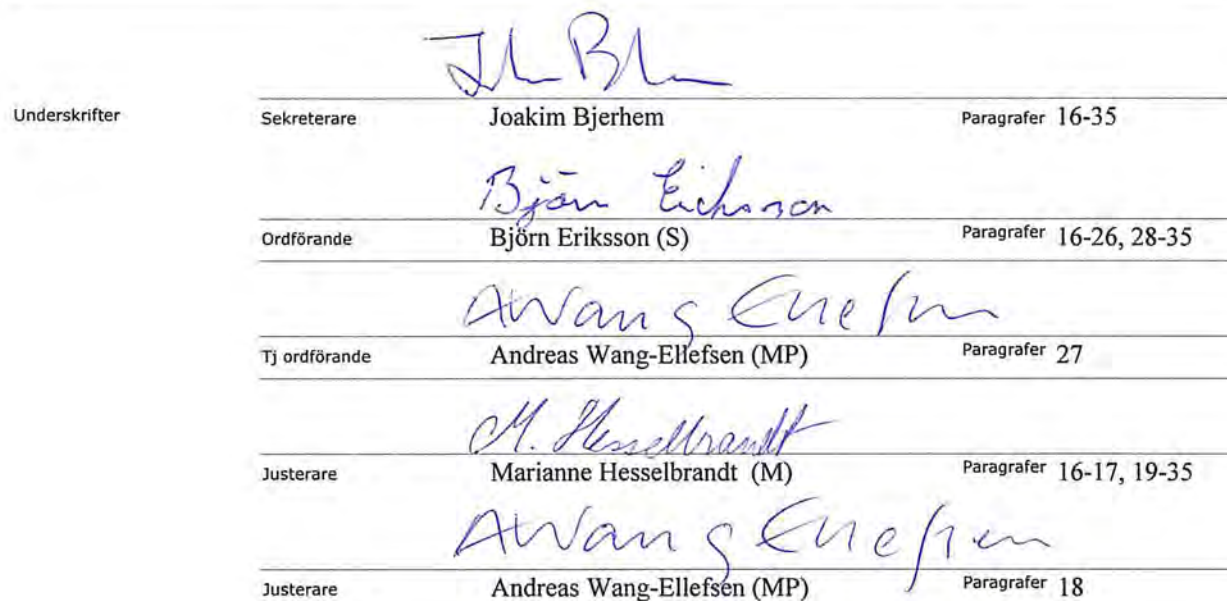 Underskrifter Sekreterare Joakim Bjerhem Paragrafer 16-35
Björn Eriksson
Ordförande Björn Eriksson (S) Paragrafer 16-26, 28-35
AWang Ellefsen
Tj ordförande Andreas Wang-Ellefsen (MP) Paragrafer 27
M. Hesselbrandt
Justerare Marianne Hesselbrandt (M) Paragrafer 16-17, 19-35
AWang Ellefsen
Justerare Andreas Wang-Ellefsen (MP) Paragrafer 18